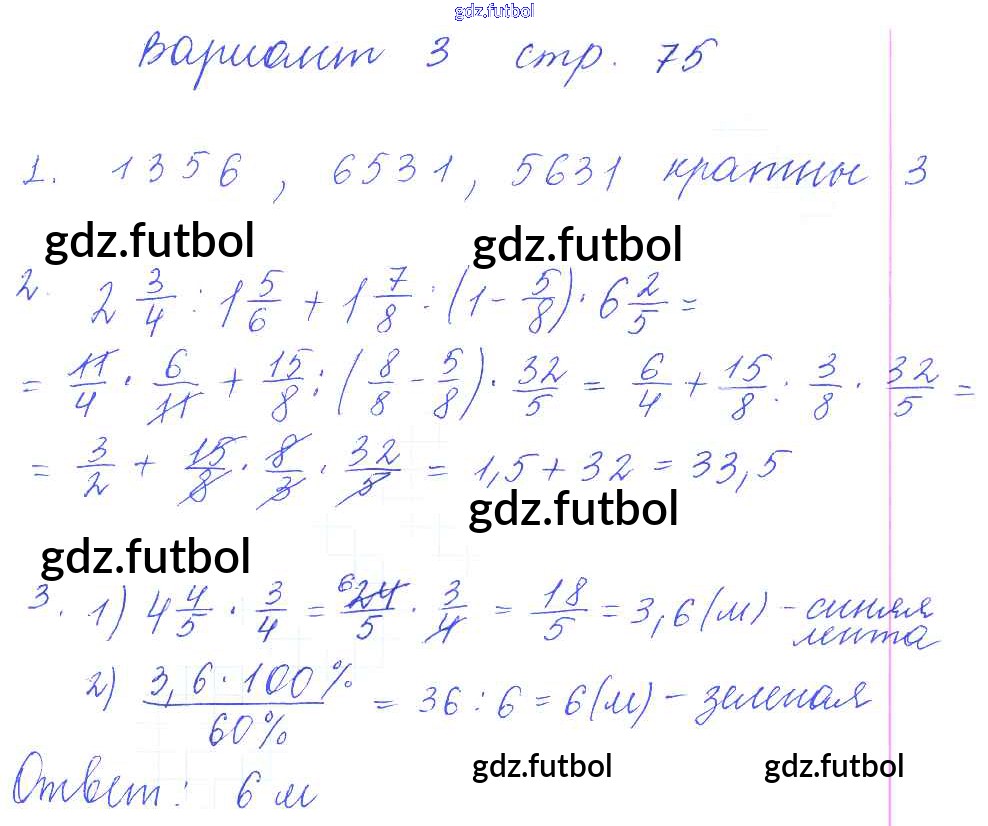 gdz.futbol
Вариант 3 стр. 75
1. 1356, 6531, 5631 кратны 3
gdz.futbol gdz.futbol
2. 2 3/4 : 1 5/6 + 1 7/8 : (1 - 5/8) · 6 2/5 =
= 11/4 · 6/11 + 15/8 : (8/8 - 5/8) · 32/5 = 6/4 + 15/8 : 3/8 · 32/5 =
= 3/2 + 15/8 · 8/3 · 32/5 = 1,5 + 32 = 33,5
gdz.futbol
gdz.futbol
3. 1) 4 4/5 · 3/4 = 6 24/5 · 3/4 = 18/5 = 3,6 (м) - синяя
лента
2) 3,6 · 100% / 60% = 36 : 6 = 6 (м) - зеленая
gdz.futbol gdz.futbol
Ответ: 6 м